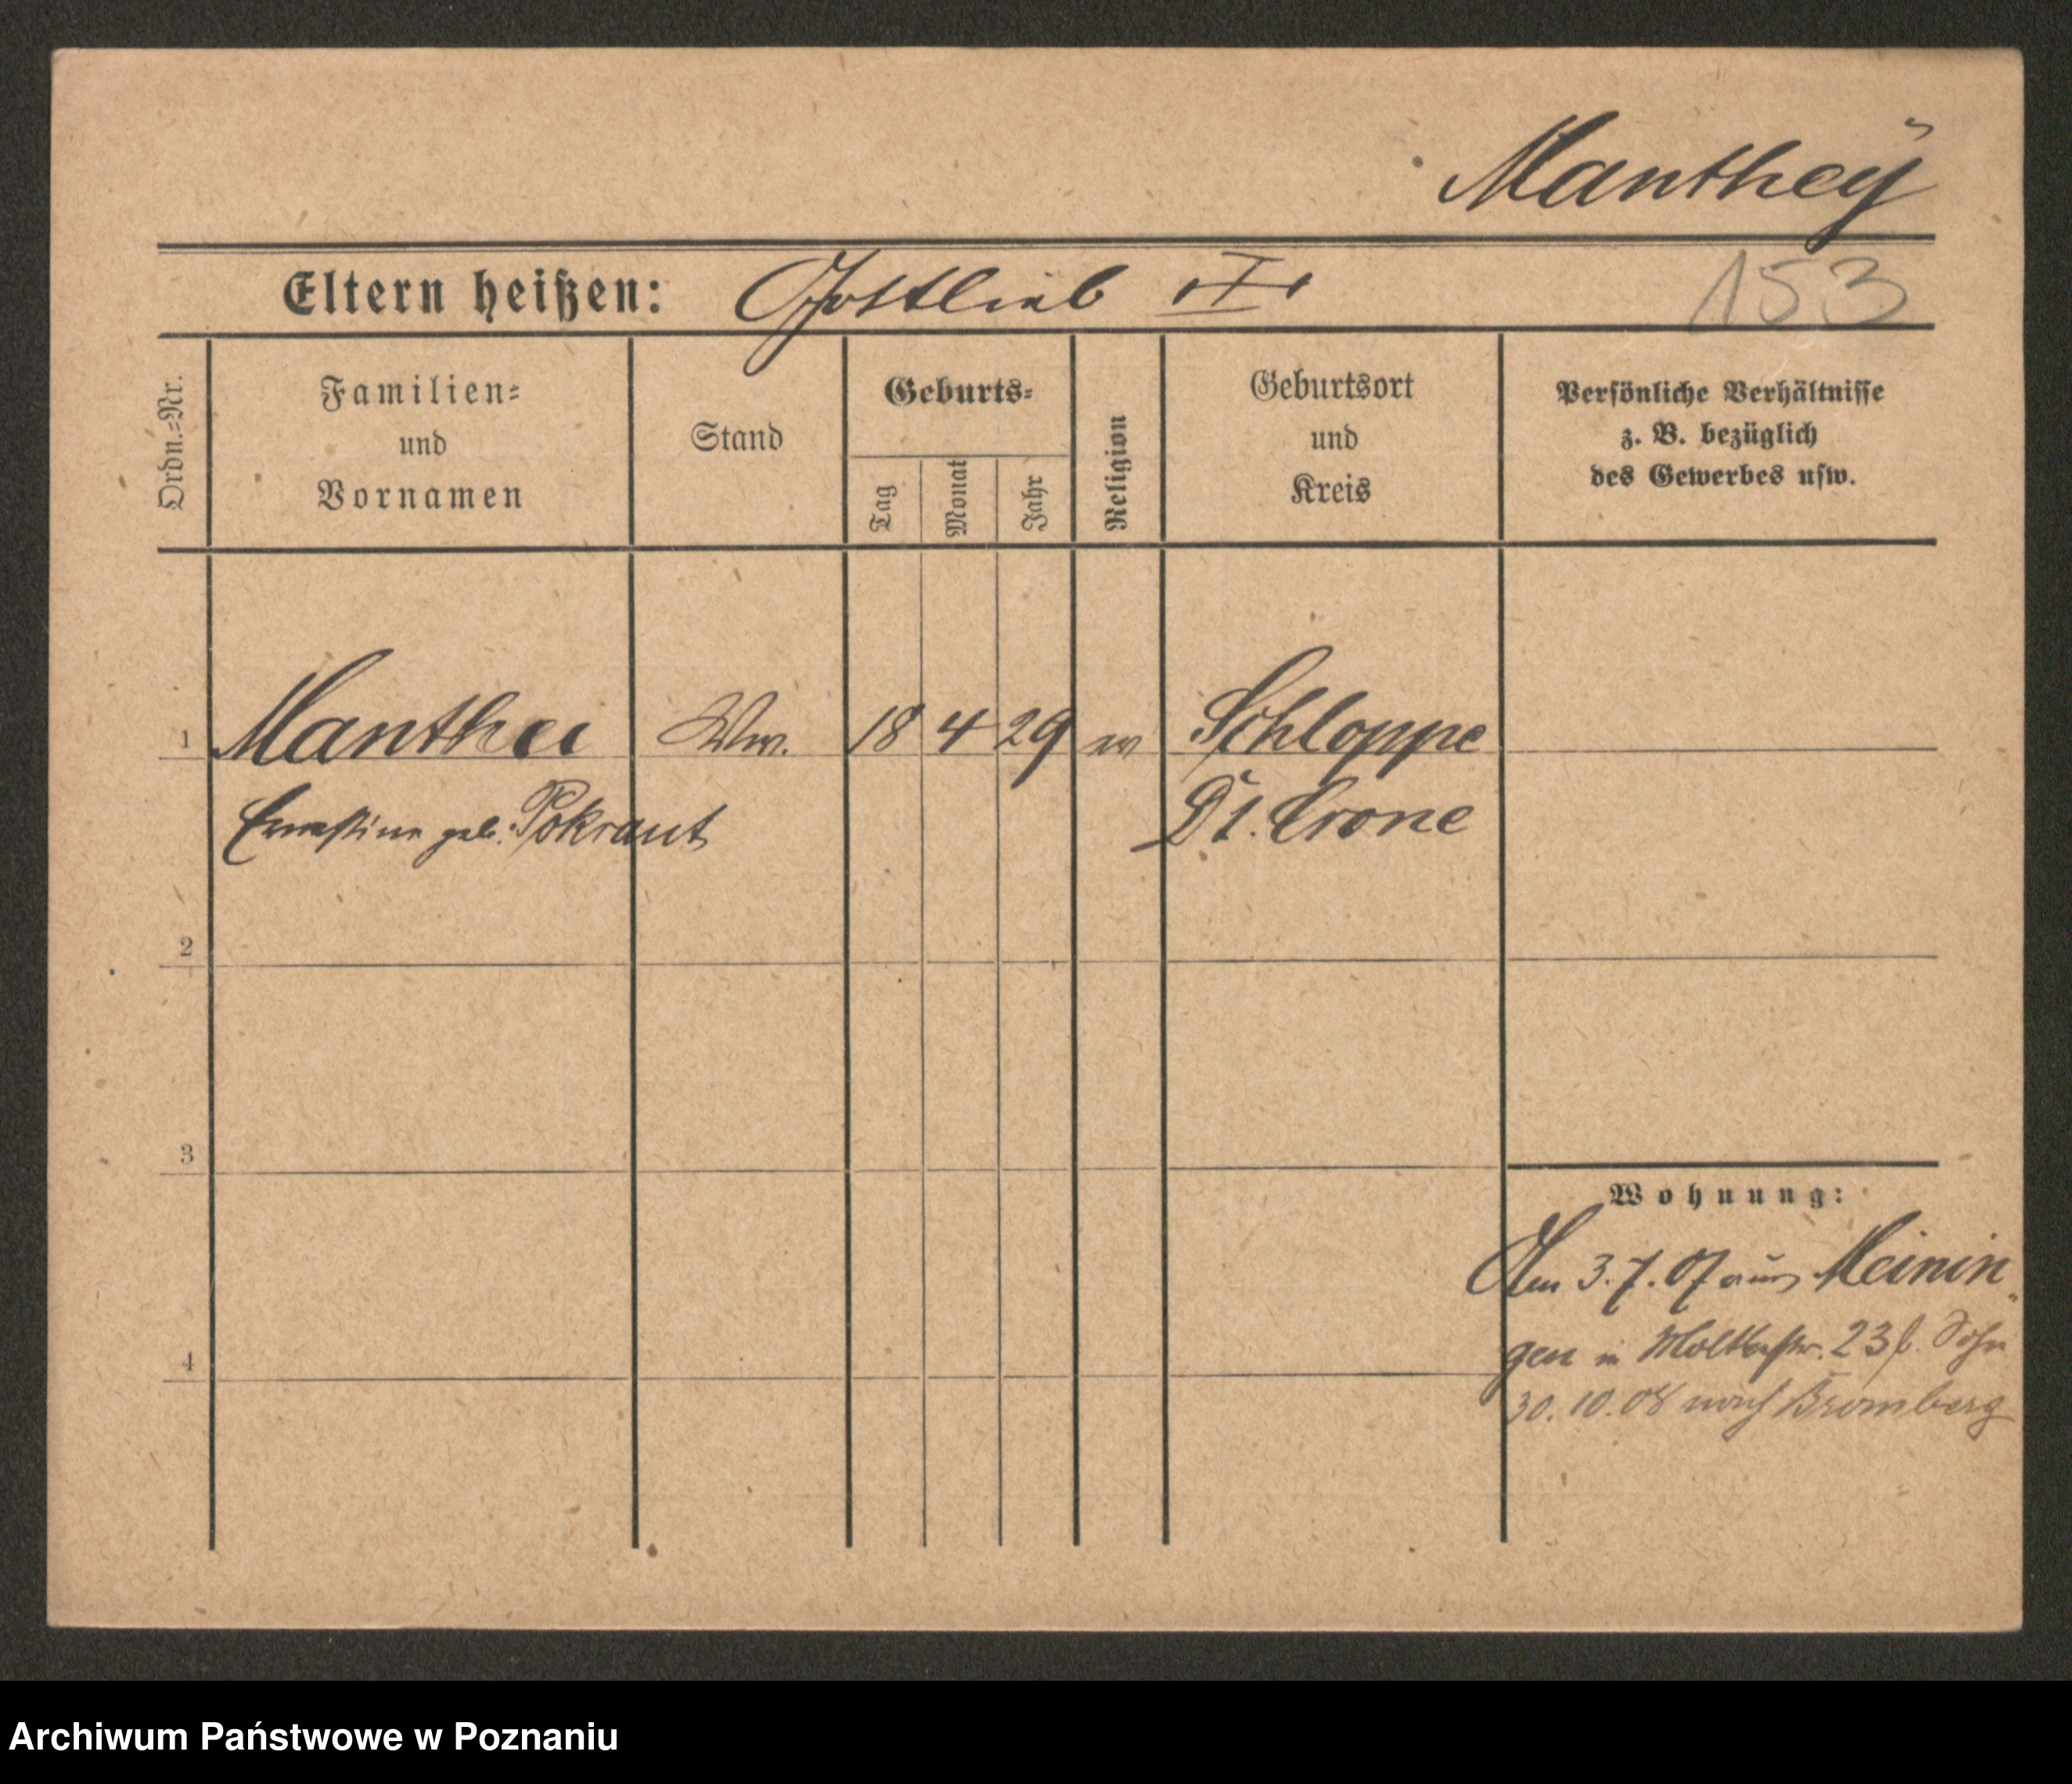 Manthey
Eltern heißen: Gottlieb
153
Ordn.-Nr.
Familien-
und
Vornamen
Stand
Geburts-
Tag
Monat
Jahr
Religion
Geburtsort
und
Kreis
Persönliche Verhältnisse
z. B. bezüglich
des Gewerbes usw.
1 Manthei Ww. 18 4 29 ev Schloppe
Ernestine geb. Pokrant Dt. Crone
2
3
Wohnung:
Am 3.7.07 aus Meinin
gen in Moltkestr. 23 b. Sohn
4
30.10.08 nach Bromberg
Archiwum Państwowe w Poznaniu